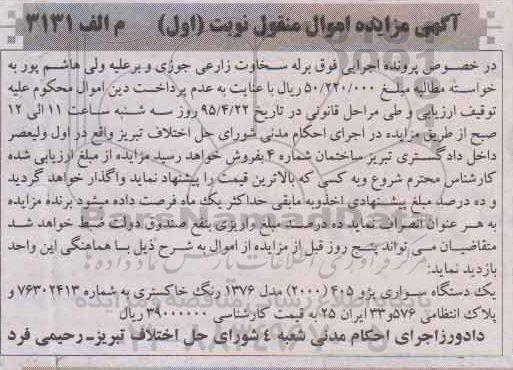 آگهی مزایده اموال منقول نوبت (اول) م الف ۳۱۳۱
در خصوص پرونده اجرایی فوق برله سخاوت زارعی جوزی و برعلیه ولی هاشم پور به
خواسته مطالبه مبلغ ۵۰/۲۲۰/۰۰۰ ریال با عنایت به عدم پرداخت دین اموال محکوم علیه
توقیف ارزیابی و طی مراحل قانونی در تاریخ ۹۵/۴/۲۲ روز سه شنبه ساعت ۱۱ الی ۱۲
صبح از طریق مزایده در اجرای احکام مدنی شورای حل اختلاف تبریز واقع در اول ولیعصر
داخل دادگستری تبریز ساختمان شماره ۴ بفروش خواهد رسید مزایده از مبلغ ارزیابی شده
کارشناس محترم شروع و به کسی که بالاترین قیمت را پیشنهاد نماید واگذار خواهد گردید
و ده درصد مبلغ پیشنهادی اخذ و به مابقی حداکثر یک ماه فرصت داده میشود برنده مزایده
به هر عنوان انصراف نماید ده درصد مبلغ واریزی بنفع صندوق دولت ضبط خواهد شد
متقاضیان می تواند پنج روز قبل از مزایده از اموال به شرح ذیل با هماهنگی این واحد
بازدید نماید:
یک دستگاه سواری پژو ۴۰۵ (۲۰۰۰) مدل ۱۳۷۶ رنگ خاکستری به شماره ۷۶۳۰۲۴۱۳ و
پلاک انتظامی ۵۷۶و۳۳ ایران ۲۵ به قیمت کارشناسی ۳۹۰۰۰۰۰۰ ریال
دادورز اجرای احکام مدنی شعبه ٤ شورای حل اختلاف تبریز- رحیمی فرد